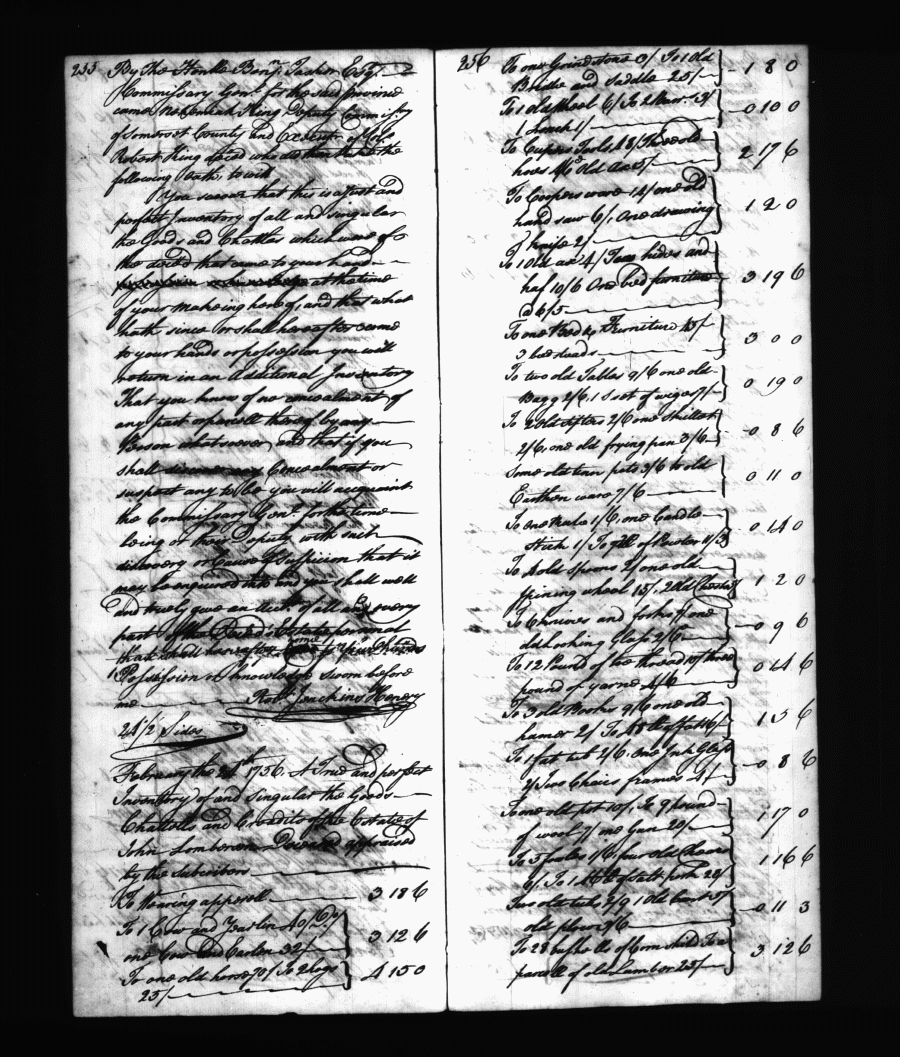 255 By the Honble Benjn. Tasker Esqr.
Commissary Genl. for the said province
came Nehemiah King Deputy Commissry
of Somerset County and Executr. of
Robert King deced who did then take the
following Oath, to wit
You swear that this is a Just and
perfect Inventory of all and singular
the Goods and Chattles which were of
the deced that came to your hand
at the time
of your makeing hereof, and that what
hath since or shall hereafter come
to your hands or possession you will
return in an additional Inventory
That you know of no concealment of
any part or parcell thereof by any
Person whatsoever and that if you
shall Concealment or
suspect any to be you will acquaint
the Commissary Genl. for the time
being or their Deputy with such
discovery or Cause of Suspicion that it
may be enquired into and you shall well
and truely give an Acct. of all and every
part of the Deced's Estate
that shall hereafter come to your Hands
Possession or knowledge Sworn before
me Robt. Jenckins Henry
24 1/2 Sides
February the 24th 1756. A True and perfect
Inventory of and Singular the Goods
Chattells and Creddits of the Estate of
John Deceased appraised
by the subcribors
To Wearing apperell 3 18 6
To 1 Cow and Yearlin 40/6
one Cow and Earlin 32/ 3 12 6
To one old horse 70/ To 2 hogs
25/ 4 15 0
256 To one Grindstone 3/ To 1 Old
Bridle and Saddle 25/ 1 8 0
To 1 old wheel 6/ To 2
1/ 0 10 0
To Cupers Tools 48/ Three old
hoes 4/6 Old axe 5/ 2 17 6
To Coopers ware 14/ one old
hand saw 6/. One drawing
knife 2/ 1 2 0
To 1 Old ax 4/ Four hides and
half 10/6 One bed furniture
a 65/ 3 19 6
To one Bed & Furniture 45/
3 bedsteads 3 0 0
To two old Tables 9/6 one old
Bagg 2/6, 1 Set of wiges 7/ 0 19 0
To 2 Old sifters 2/6 one Skillet
2/6, one old frying pan 3/6 0 8 6
Some old iron pots 3/6 to old
Earthen ware 7/6 0 11 0
To one 1/6, one Candle
Stick 1/ To of Pewter 11/3 0 14 0
To 4 old Spoons 2/ one old
Spining wheel 15/. 2 Old Chests 1 2 0
To Knives and forks 7/ one
old looking Glass 2/6 0 9 6
To 12 Pound of toe thread 10/ three
pound of yarne 4/6 0 14 6
To 3 old Books 9/6 one old
hamer 2/ To of fat 16/ 1 3 6
To 1 fat tub 2/6, One Glass
2/ Two Chairs frames 4/ 0 8 6
To one old pot 10/. To 9 pound
of wool 9/ one Gun 20/ 1 17 0
To 3 1/6, four old Chairs
6/. To 1 of salt pork 29/ 1 16 6
Two old tubs 2/9 1 Old Cart 5/
old plows 3/6 0 11 3
To 28 bushells of Corn
parcell of old Lumber 25/ 3 12 6